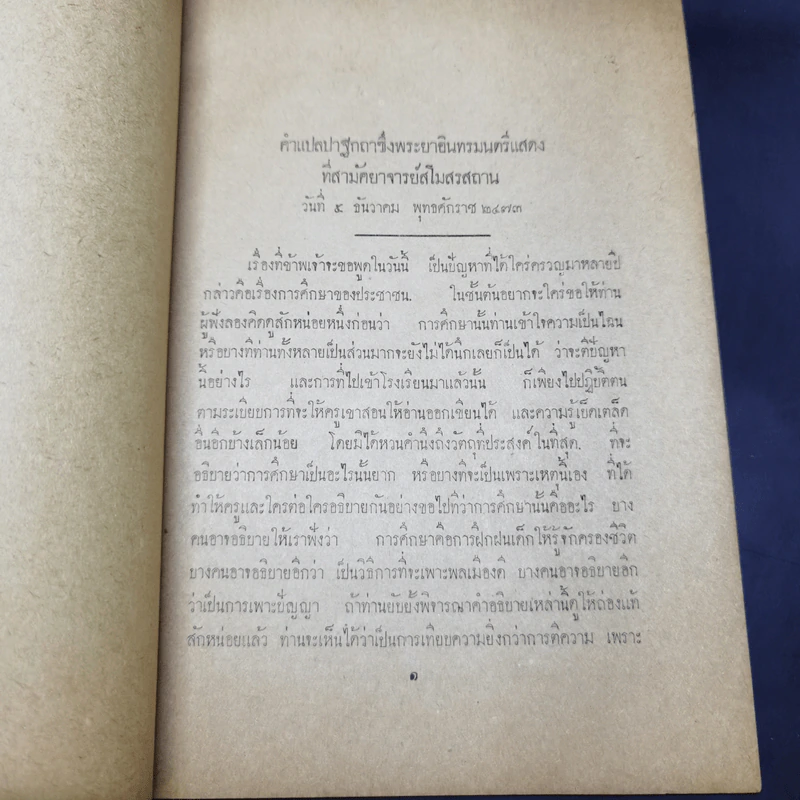 คำแปลปาฐกถาซึ่งพระยาอินทรมนตรีแสดง
ที่สามัคยาจารย์สโมสรสถาน
วันที่ ๕ ธันวาคม พุทธศักราช ๒๔๗๓
เรื่องที่ข้าพเจ้าจะขอพูดในวันนี้ เป็นปัญหาที่ได้ใคร่ครวญมาหลายปี
กล่าวคือเรื่องการศึกษาของประชาชน. ในชั้นต้นอยากจะใคร่ขอให้ท่าน
ผู้ฟังลองคิดดูสักหน่อยหนึ่งก่อนว่า การศึกษานั้นท่านเข้าใจความเป็นไฉน
หรือบางทีท่านทั้งหลายเป็นส่วนมากจะยังไม่ได้นึกเลยก็เป็นได้ ว่าจะตีปัญหา
นี้อย่างไร และการที่ไปเข้าโรงเรียนมาแล้วนั้น ก็เพียงไปปฏิบัติตน
ตามระเบียบการที่จะให้ครูเขาสอนให้อ่านออกเขียนได้ และความรู้เบ็ดเตล็ด
อื่นอีกบ้างเล็กน้อย โดยมิได้หวนคำนึงถึงวัตถุที่ประสงค์ในที่สุด. ที่จะ
อธิบายว่าการศึกษาเป็นอะไรนั้นยาก หรือบางทีจะเป็นเพราะเหตุนี้เอง ที่ได้
ทำให้ครูและใครต่อใครอธิบายกันอย่างขอไปทีว่าการศึกษานั้นคืออะไร บาง
คนอาจอธิบายให้เราฟังว่า การศึกษาคือการฝึกฝนเด็กให้รู้จักครองชีวิต
บางคนอาจอธิบายอีกว่า เป็นวิธีการที่จะเพาะพลเมืองดี บางคนอาจอธิบายอีก
ว่าเป็นการเพาะปัญญา ถ้าท่านยับยั้งพิจารณาคำอธิบายเหล่านี้ดูให้ถ่องแท้
สักหน่อยแล้ว ท่านจะเห็นได้ว่าเป็นการเทียบความยิ่งกว่าการตีความ เพราะ
๑